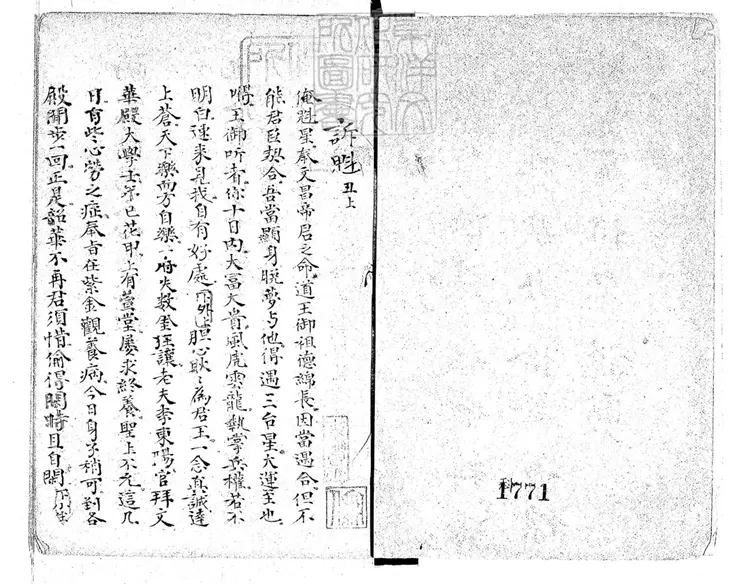 訴魁 丑上
俺魁星奉文昌帝君之命道王御祖德綿長因當遇合但不
能君臣契合吾當顯身脫夢与他得遇三台星大運至也
王御听者你十日內大富大貴風虎雲龍執掌兵權若不
明白速來見我自有好處下外上胆心耿々為君王一念真誠達
上蒼天下樂而方自樂一府火數奎 讓老夫李東陽官拜文
華殿大學士年已花甲上有萱堂屢求終養聖上不允這几
日有些心勞之症奉旨在紫金觀養病今日身子稍可到各
殿閑步一回正是韶華不再君須惜偷得閑時且自閑下小生
1771